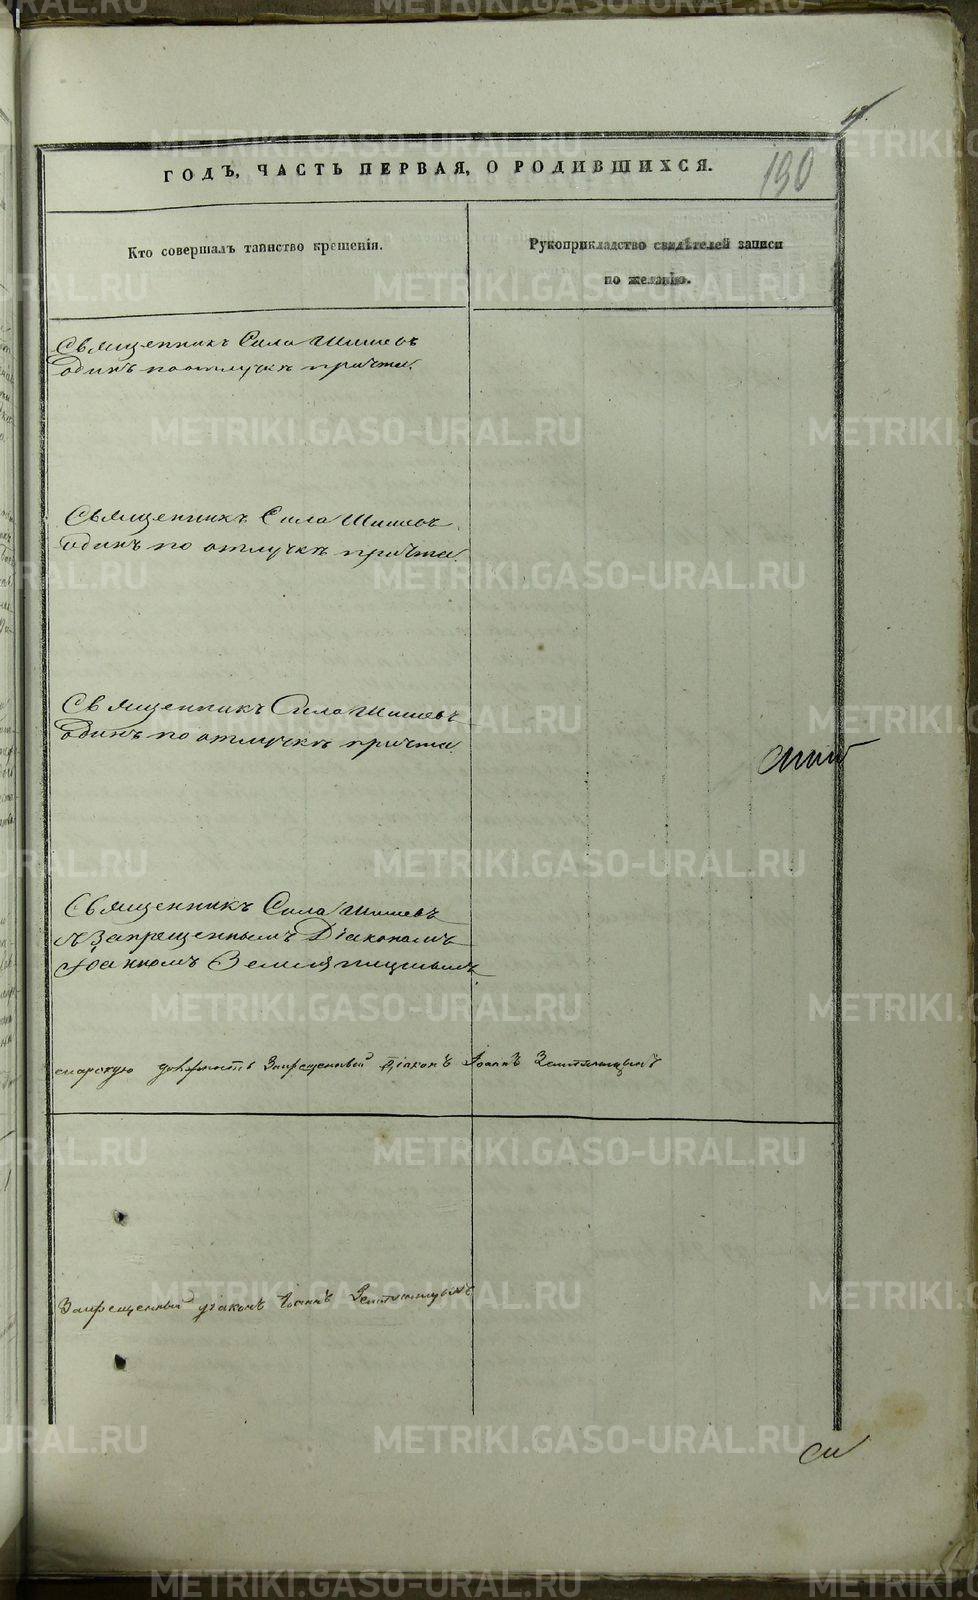 ГОДЪ, ЧАСТЬ ПЕРВАЯ, О РОДИВШИХСЯ.
190
Кто совершалъ таинство крещенія.
Рукоприкладство свидѣтелей записи
по желанію.
Священникъ Сила Шишевъ
одинъ по отлучкѣ причта.
Священникъ Сила Шишевъ
одинъ по отлучкѣ причта.
Священникъ Сила Шишевъ
одинъ по отлучкѣ причта.
Священникъ Сила Шишевъ
съ Запрещеннымъ Діакономъ
Іоанномъ Земляницынымъ
должность Запрещенный Діаконъ Іоаннъ Земляницынъ
Запрещенный діаконъ Іоаннъ Земляницынъ
METRIKI.GASO-URAL.RU